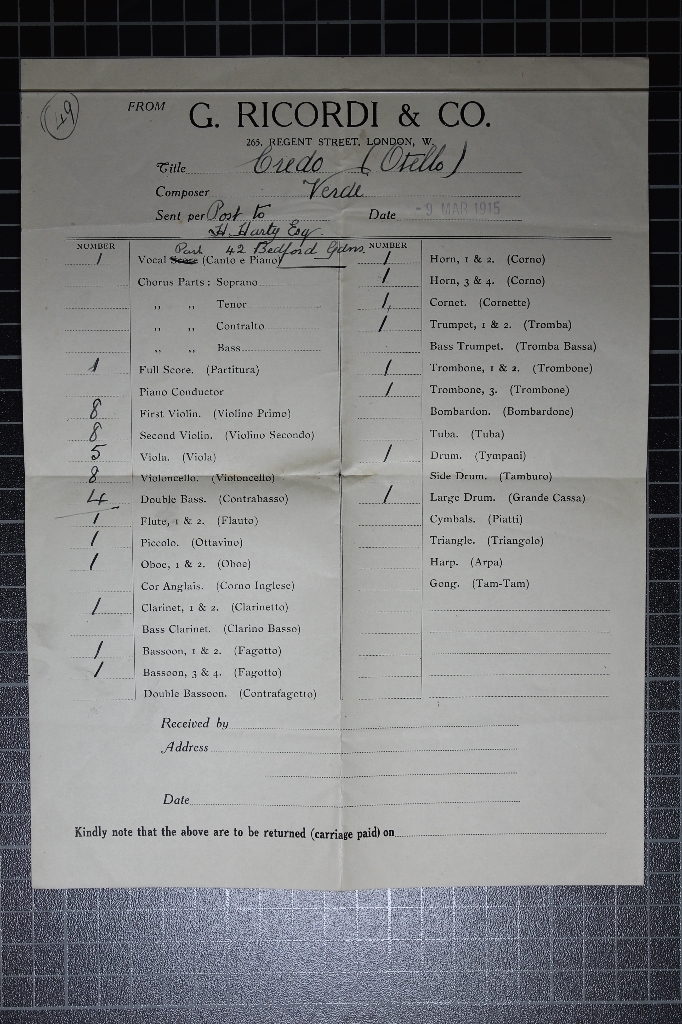 49
FROM G. RICORDI & CO.
265, REGENT STREET, LONDON, W.
Title Credo (Otello)
Composer Verde
Sent per Post to Date - 9 MAR 1915
H. Harty Esq
42 Bedford Gdns
NUMBER
1 Vocal Score Part (Canto e Piano)
Chorus Parts: Soprano
,, ,, Tenor
,, ,, Contralto
,, ,, Bass
1 Full Score. (Partitura)
Piano Conductor
8 First Violin. (Violino Primo)
8 Second Violin. (Violino Secondo)
5 Viola. (Viola)
8 Violoncello. (Violoncello)
4 Double Bass. (Contrabasso)
1 Flute, 1 & 2. (Flauto)
1 Piccolo. (Ottavino)
1 Oboe, 1 & 2. (Oboe)
Cor Anglais. (Corno Inglese)
1 Clarinet, 1 & 2. (Clarinetto)
Bass Clarinet. (Clarino Basso)
1 Bassoon, 1 & 2. (Fagotto)
1 Bassoon, 3 & 4. (Fagotto)
Double Bassoon. (Contrafagotto)
NUMBER
1 Horn, 1 & 2. (Corno)
1 Horn, 3 & 4. (Corno)
1 Cornet. (Cornette)
1 Trumpet, 1 & 2. (Tromba)
Bass Trumpet. (Tromba Bassa)
1 Trombone, 1 & 2. (Trombone)
1 Trombone, 3. (Trombone)
Bombardon. (Bombardone)
Tuba. (Tuba)
1 Drum. (Tympani)
Side Drum. (Tamburo)
1 Large Drum. (Grande Cassa)
Cymbals. (Piatti)
Triangle. (Triangolo)
Harp. (Arpa)
Gong. (Tam-Tam)
Received by
Address
Date
Kindly note that the above are to be returned (carriage paid) on